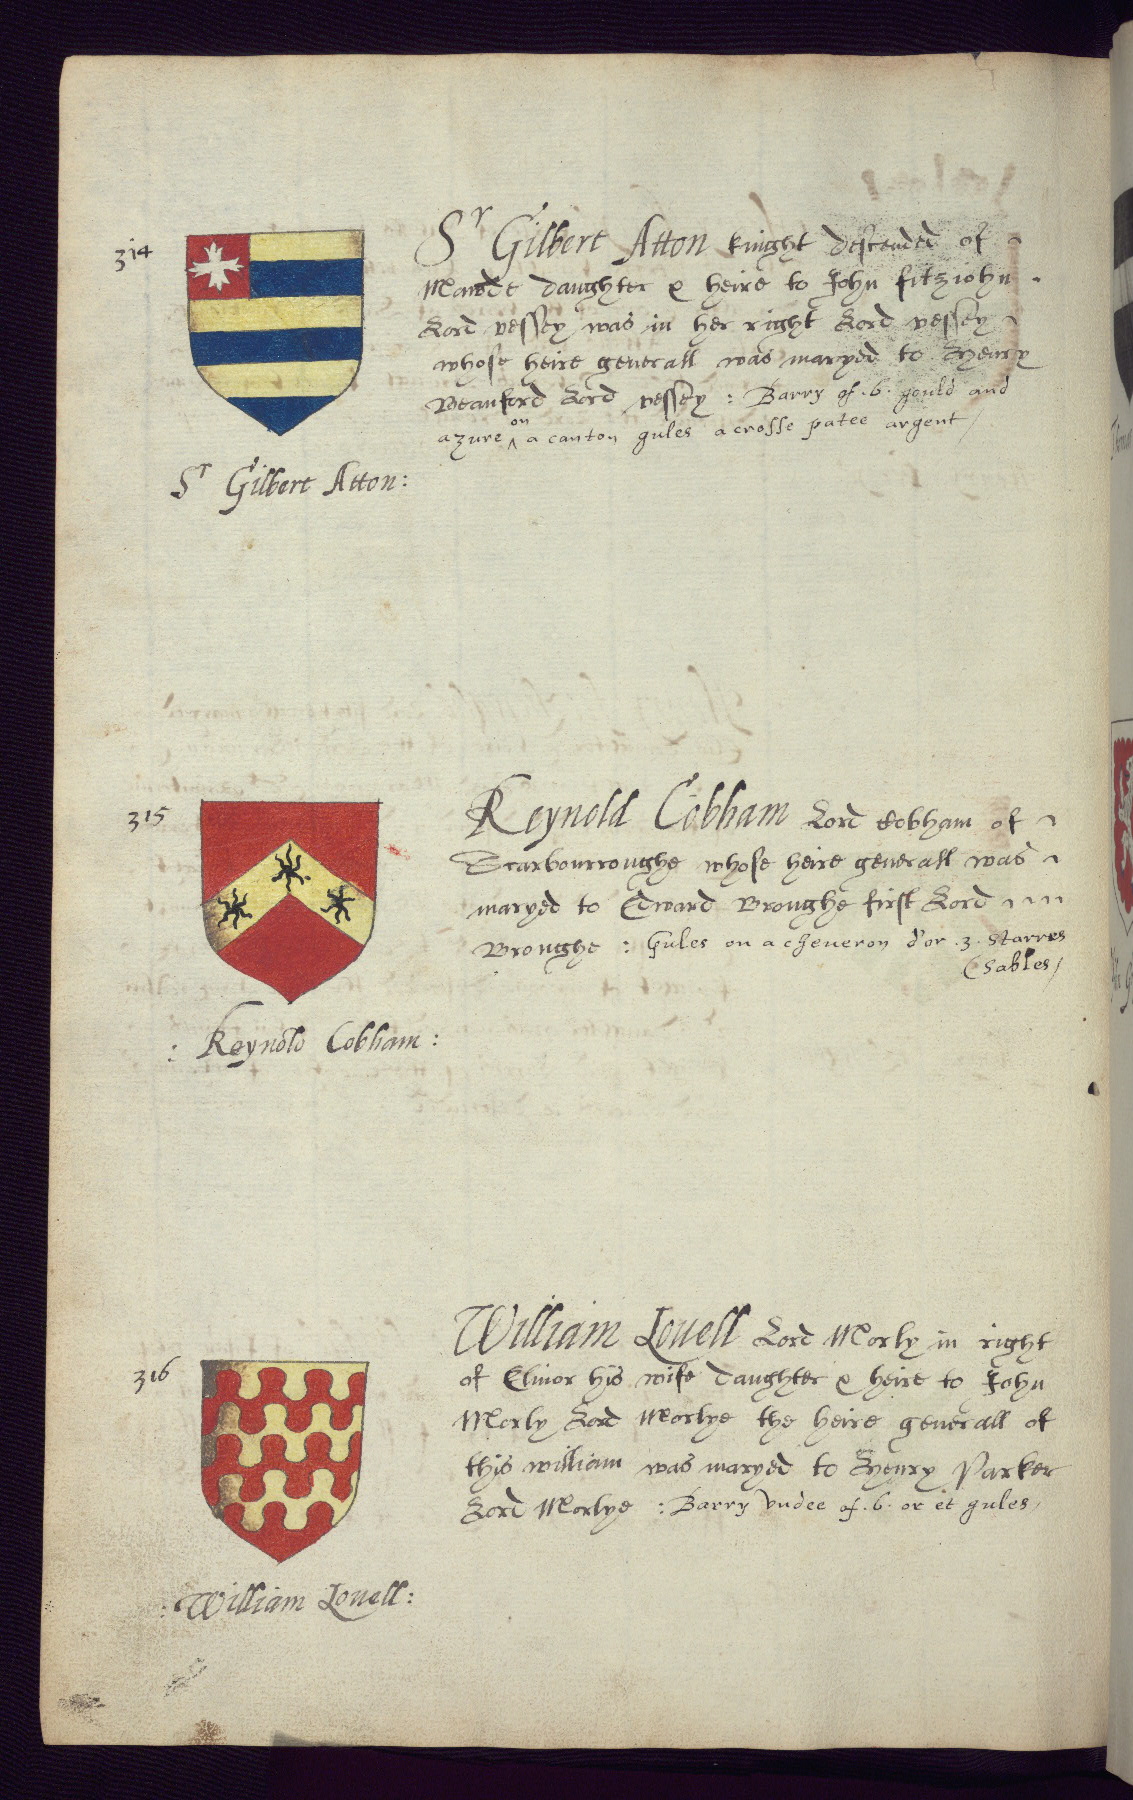 314
Sr Gilbert Atton knight descended of
Mawde daughter & heire to John fitziohn
Lord vessey was in her right Lord vessey
whose heire generall was maryed to Henry
Beauford Lord vessey : Barry of .6. gould and
azure on a canton gules a crosse patee argent /
Sr Gilbert Atton :
315
Reynold Cobham Lord Cobham of
Scarbourroughe whose heire generall was
maryed to Edward Broughe first Lord
Broughe : Gules on a cheueron d'or .3. starres
(sables /
: Reynold Cobham :
316
William Louell Lord Morly in right
of Elinor his wife daughter & heire to John
Morly Lord Morlye the heire generall of
this william was maryed to Henry Parker
Lord Morlye : Barry vndee of .6. or et gules /
: William Louell :